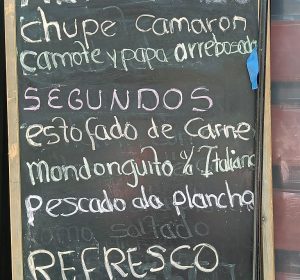 chupe camaron
camote y papa arrebosada
SEGUNDOS
estofado de carne
Mondonguito a/Italiana
Pescado ala plancha
lomo saltado
REFRESCO